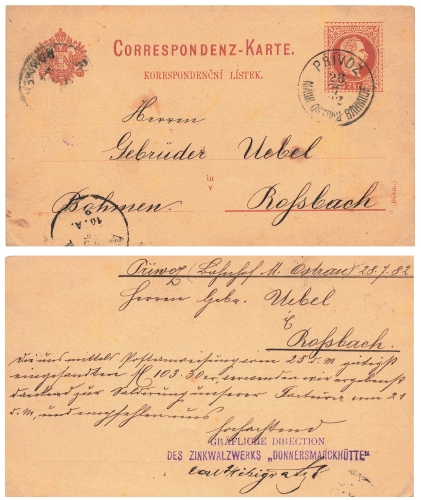 CORRESPONDENZ-KARTE.
KORESPONDENČNÍ LÍSTEK.
PŘIVOZ
28
7
82
MÄHR. OSTRAU BAHNHOF
Herrn
Gebrüder Uebel
in
v
Böhmen. Roßbach
Přivoz (Bahnhof M. Ostrau) 28.7.82
Herren Gebr. Uebel
Roßbach.
Die uns mittels Postanweisung vom 25 d. M. gütigst
eingesandten 103.30 verwenden wir ergebenst
dankend zur Saldirung unserer Factura vom 21
d. M., und empfehlen uns
hochachtend
GRÄFLICHE DIRECTION
DES ZINKWALZWERKS „DONNERSMARCKHÜTTE“